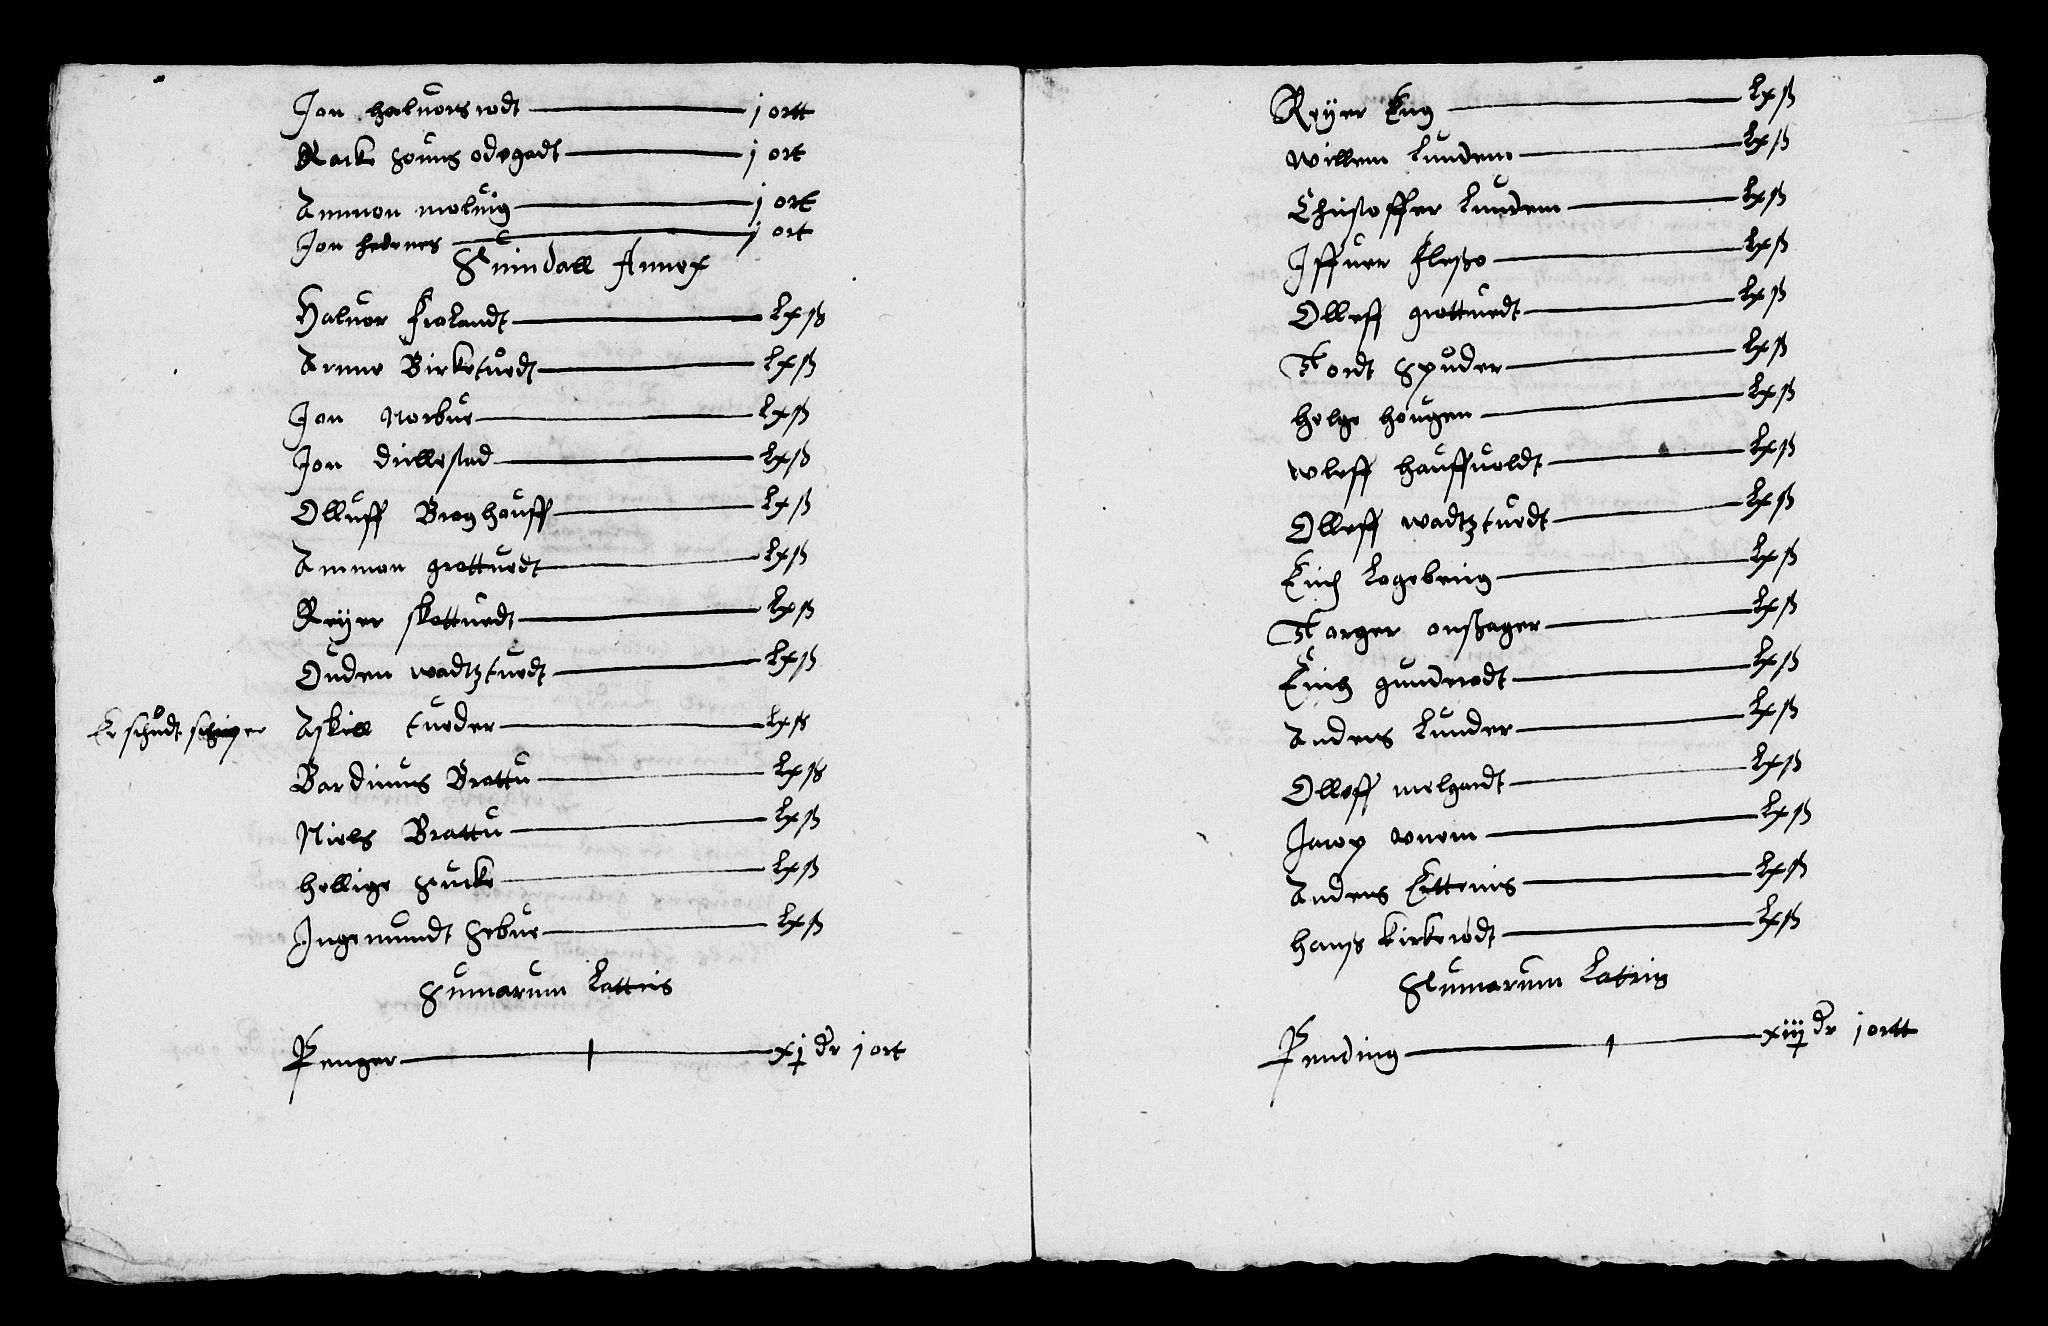 Jon haluorsrødt — j ortt
Racke souns ødegadt — j ort
Ammon moluig — j ort
Jon hedenes — j ort
Suindall Annex
Haluor Frolandt — Lxß
Arnne Birketuedt — Lxß
Jon Norbue — Lxß
Jon dullestad — Lxß
Olluff Berghouff — Lxß
Ammon grottuedt — Lxß
Reyer skottuedt — Lxß
Ouden wadtztuedt — Lxß
Er schudt schipper Askill tueder — Lxß
Bardinus Brattu — Lxß
Niels Brattu — Lxß
hellige sucke — Lxß
Ingemundt Sebue — Lxß
Sumarum Lattris
Penger — xj dr j ort
Reyer Krog — Lxß
willem Lundem — Lxß
Christoffer Lundem — Lxß
Iffuer Flesio — Lxß
Olleff grottuedt — Lxß
Tordt spuder — Lxß
helge hougen — Lxß
wleff hauffuoldt — Lxß
Olleff wadtztuedt — Lxß
Erich Legebrug — Lxß
Torger onsager — Lxß
Erich gunderødt — Lxß
Anders Lunder — Lxß
Olleff melgardt — Lxß
Jacop wnem — Lxß
Anders Kettenis — Lxß
hans kirkerødt — Lxß
Summarum Latris
Pending — xiij dr j ortt